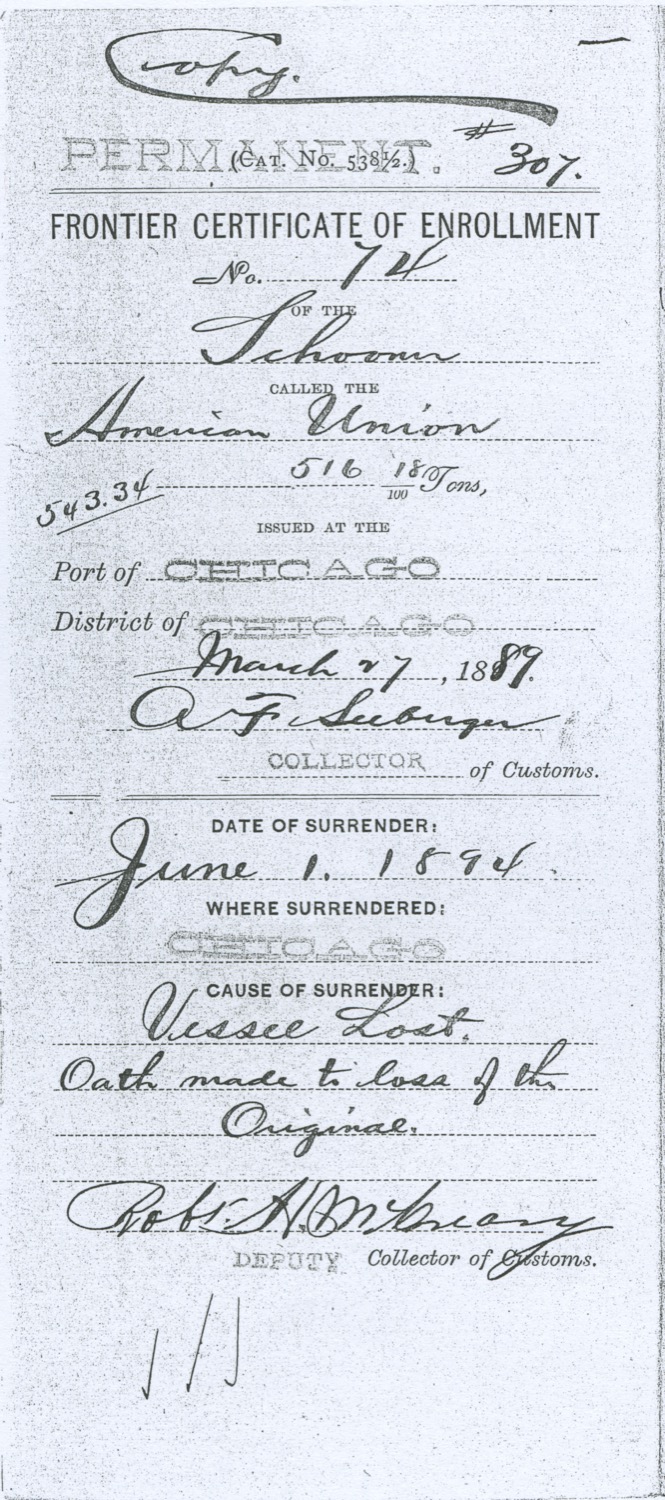 Copy.
PERMANENT.
(CAT. No. 538½.)
# 307.
FRONTIER CERTIFICATE OF ENROLLMENT
No. 74
OF THE
Schooner
CALLED THE
American Union
516 18/100 Tons,
543.34
ISSUED AT THE
Port of CHICAGO
District of CHICAGO
March 27, 1889.
A F Seeberger
COLLECTOR of Customs.
DATE OF SURRENDER:
June 1. 1894.
WHERE SURRENDERED:
CHICAGO
CAUSE OF SURRENDER:
Vessel Lost.
Oath made to loss of the
Original.
Robt. H. McCreary
DEPUTY Collector of Customs.